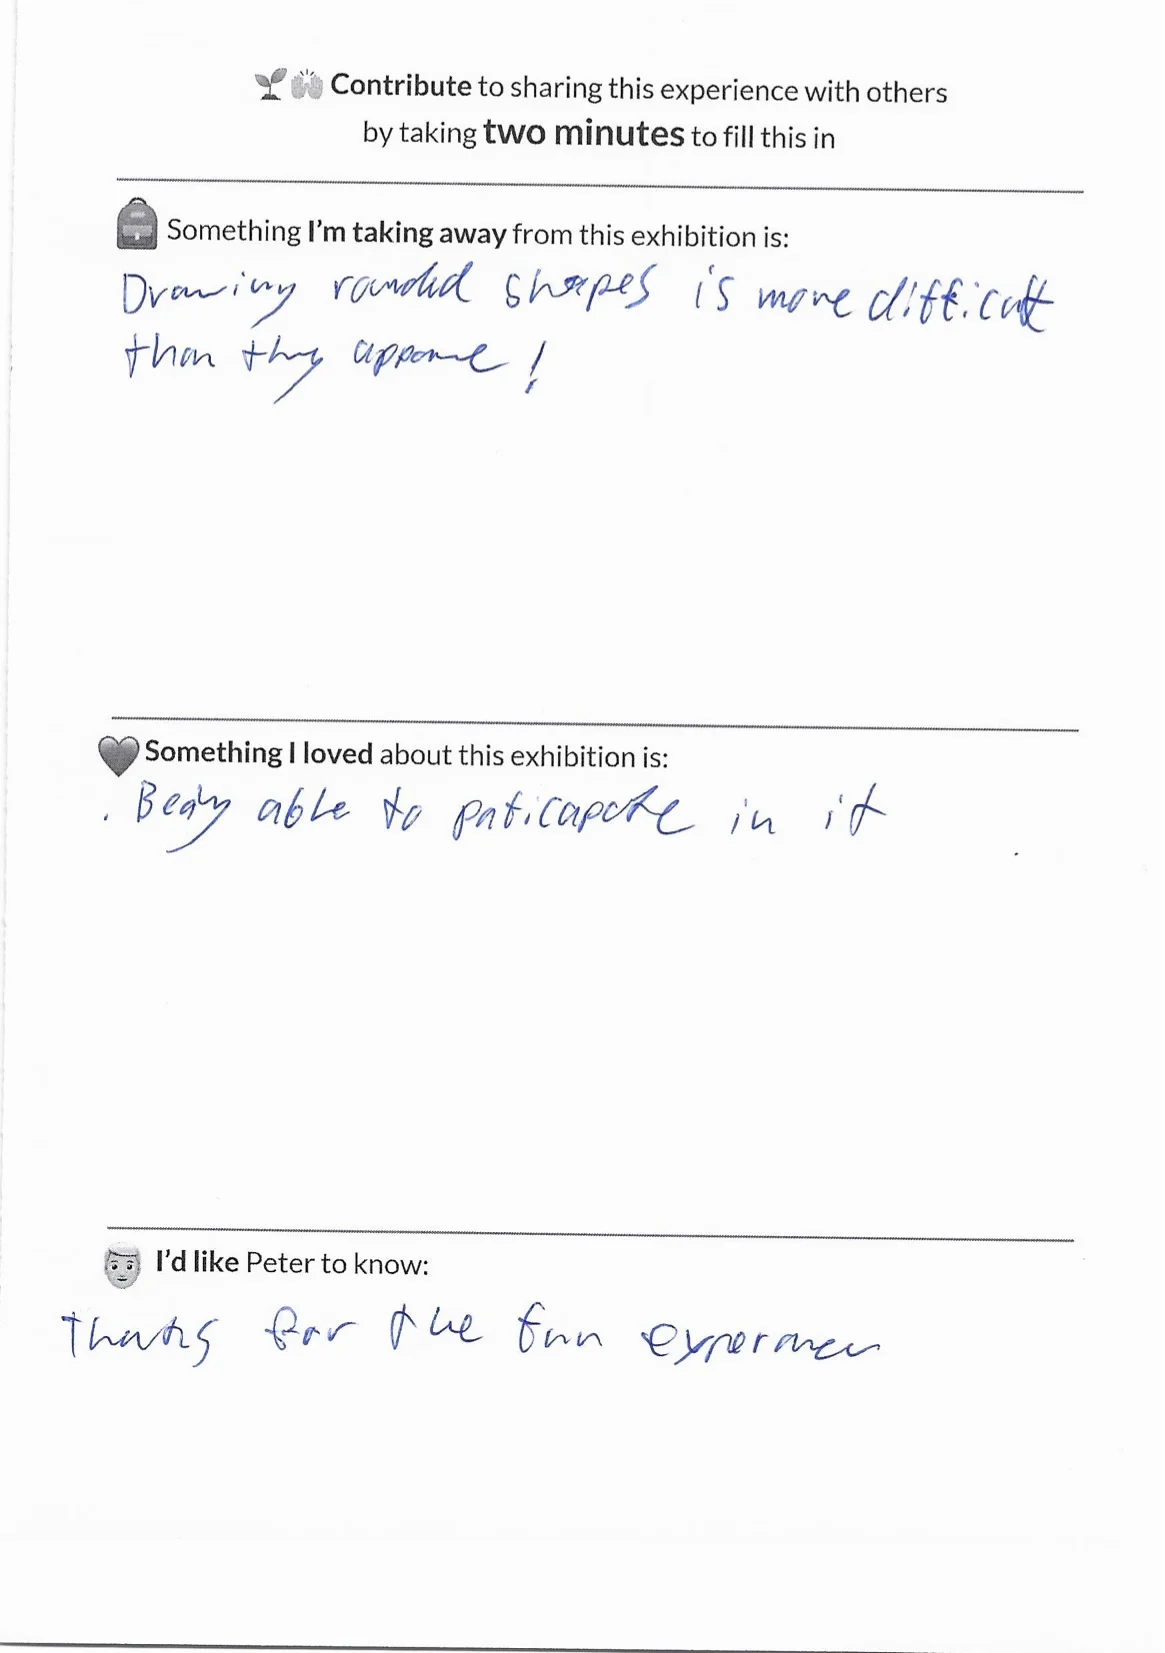 Contribute to sharing this experience with others
by taking two minutes to fill this in
Something I'm taking away from this exhibition is:
Drawing rounded shapes is more difficult
than they
Something I loved about this exhibition is:
. Being able to paticapate in it
I'd like Peter to know:
Thanks for the fun